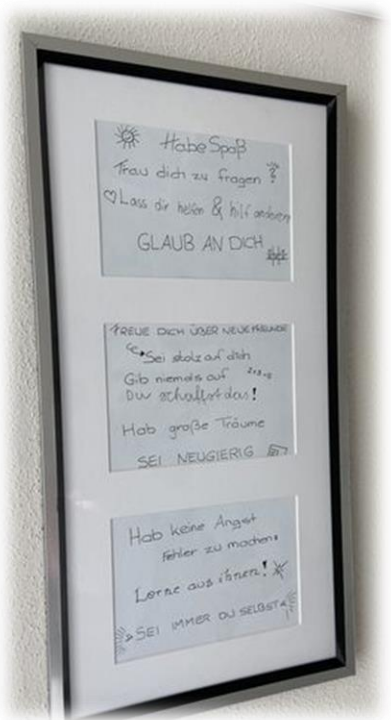 Habe Spaß
Trau dich zu fragen ?
Lass dir helfen & hilf anderen
GLAUB AN DICH
FREUE DICH ÜBER NEUE FREUNDE
Sei stolz auf dich
Gib niemals auf
Du schaffst das!
Hab große Träume
SEI NEUGIERIG
Hab keine Angst
Fehler zu machen.
Lerne aus ihnen!
SEI IMMER DU SELBST